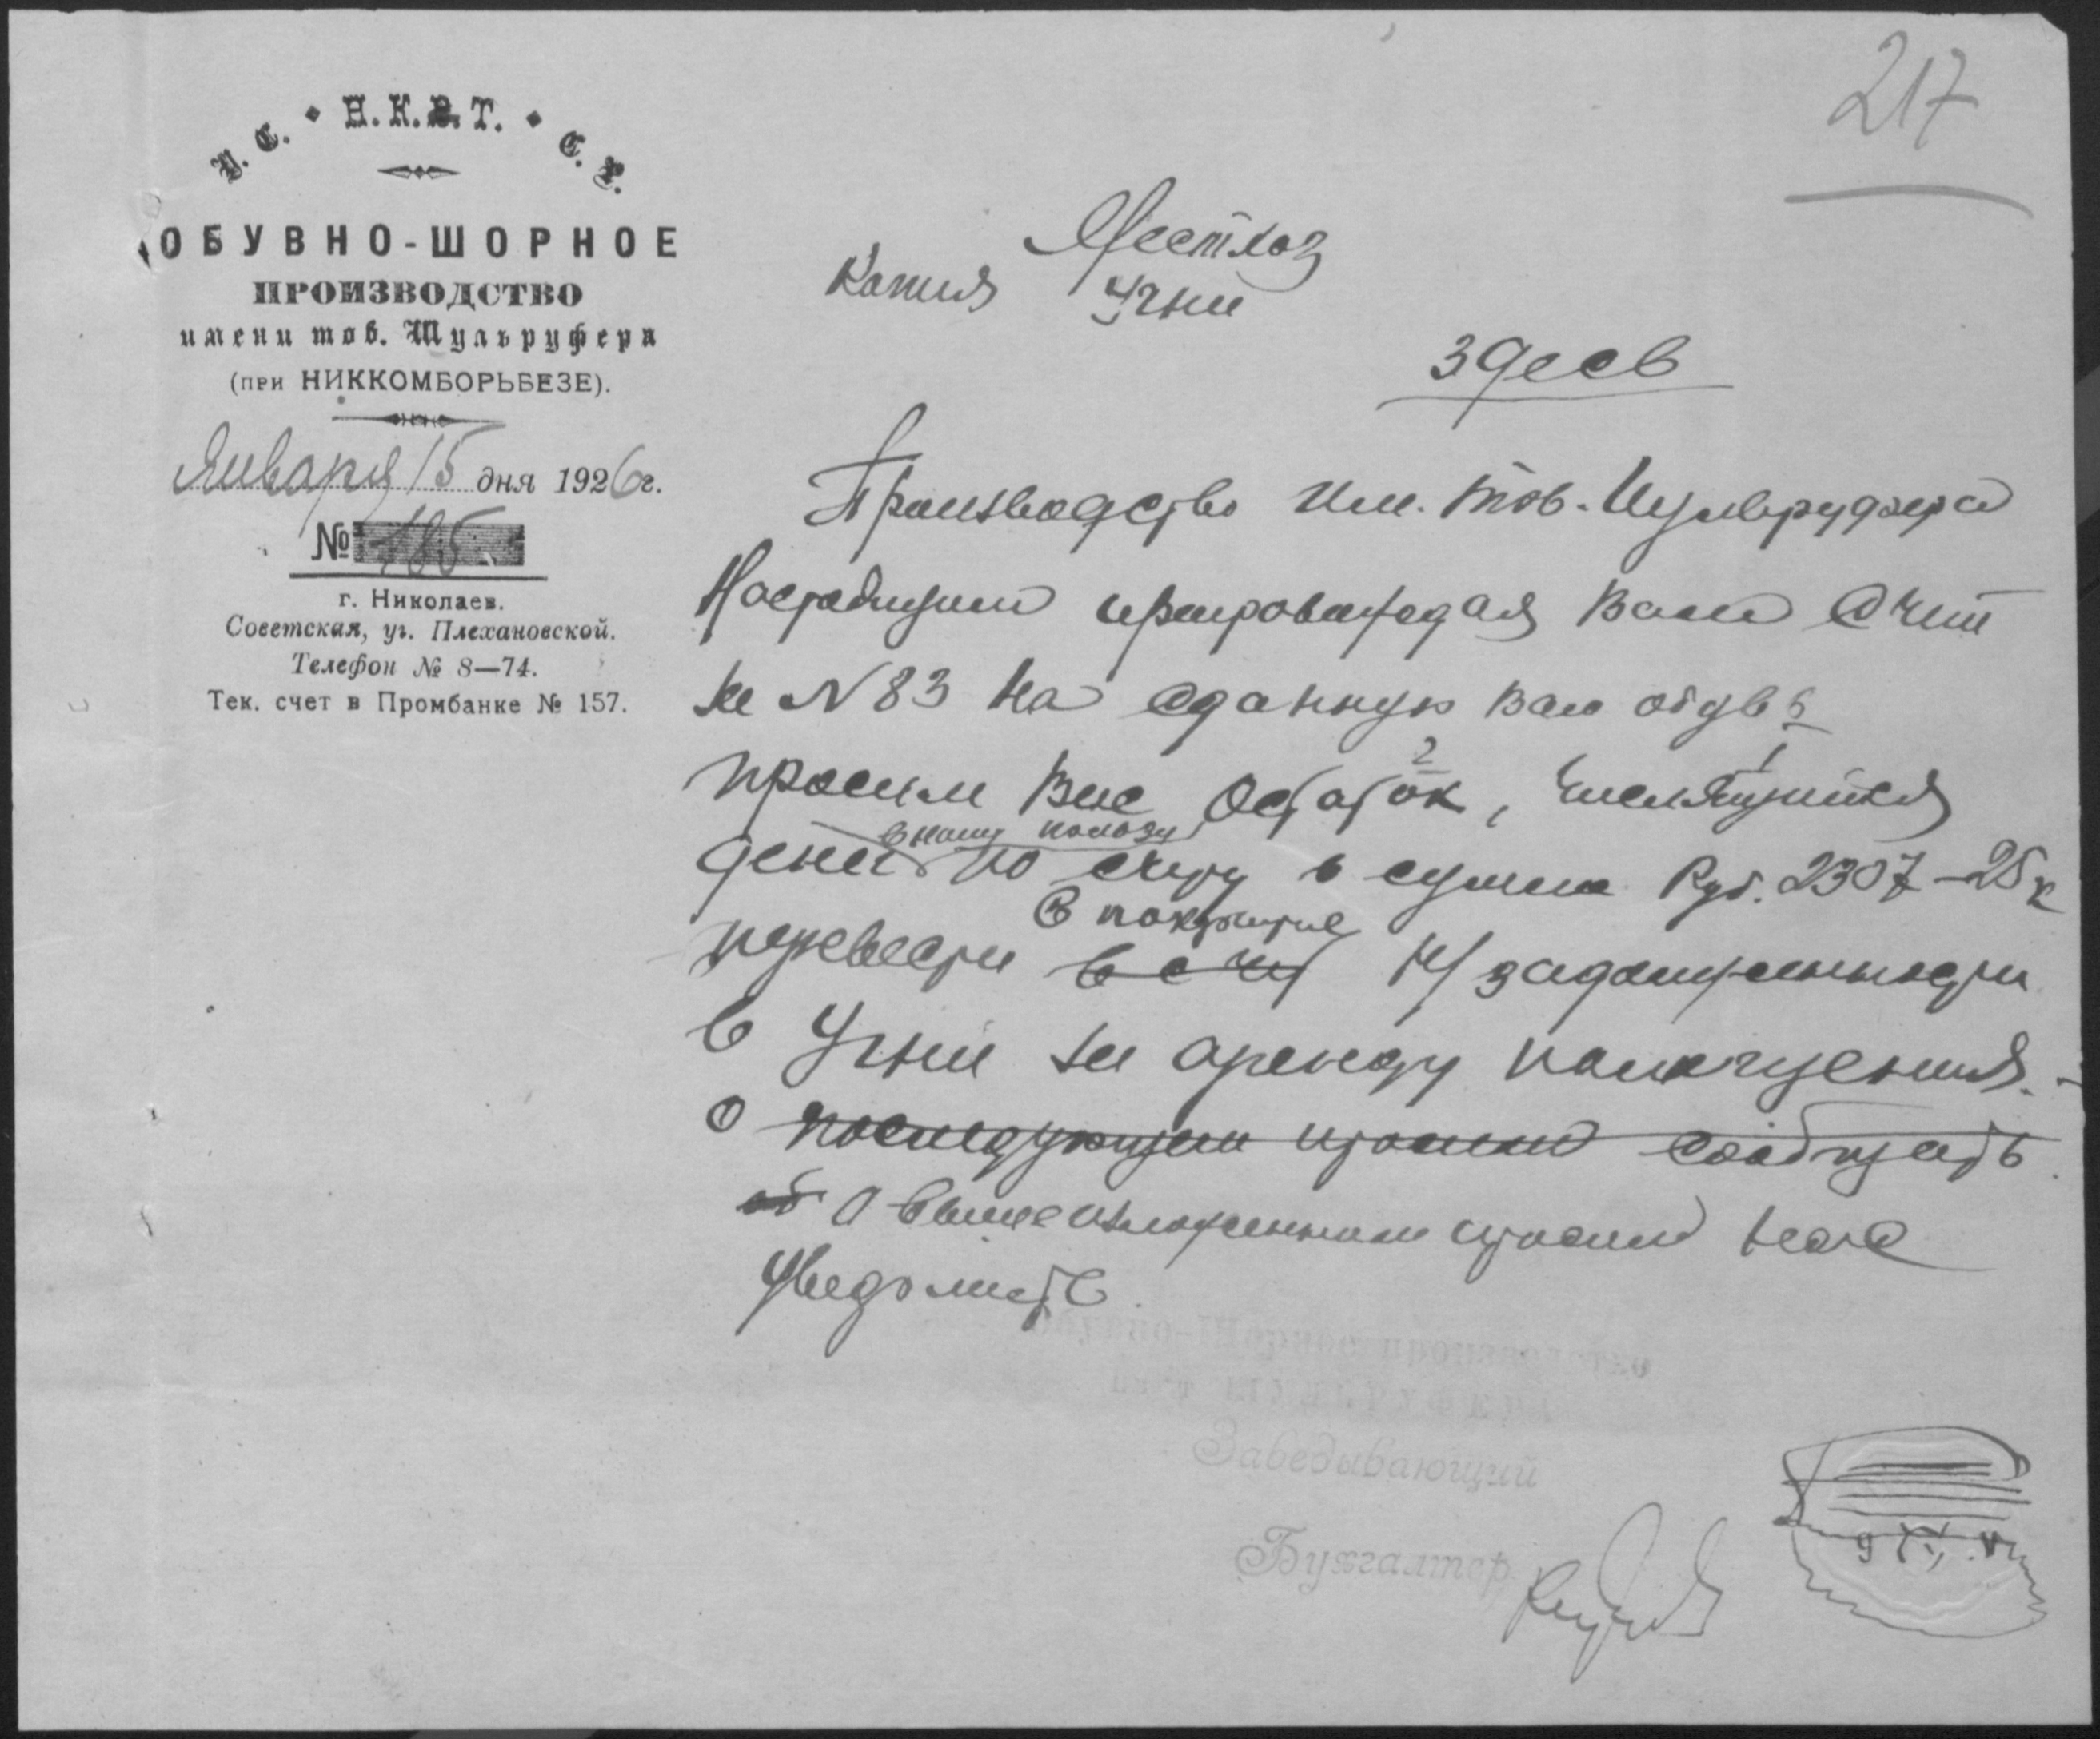 217
У. С. Н. К. В. Т. С. Р.
ОБУВНО-ШОРНОЕ
ПРОИЗВОДСТВО
имени тов. Шульруфера
(при НИККОМБОРЬБЕЗЕ).
Января 15 дня 1926г.
№ 185
г. Николаев.
Советская, уг. Плехановской.
Телефон № 8—74.
Тек. счет в Промбанке № 157.
Местхоз
Копия Угни
Здесь
Производство Им. Тов. Шульруфера
Настоящим препровождая Вам Счет
за N 83 На сданную Вам обувь
просим Вас Остаток 2, числящийся 1
в нашу пользу
денег по счету в сумме Руб. 2307-25к
В покрытие
перевести в счет н/задолженности
в Угни за аренду помещения.-
О последующем просим сообщить.
об О вышеизложенном просим нас
Уведомить.
Обувно-Шорное производство
Заведывающий
Бухгалтер